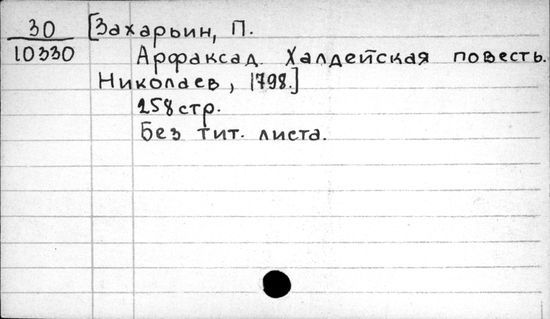 30 [Захарьин, П.
10330 Арфаксад. Халдейская повесть.
Николаев, 1798.]
258 стр.
Без тит. листа.